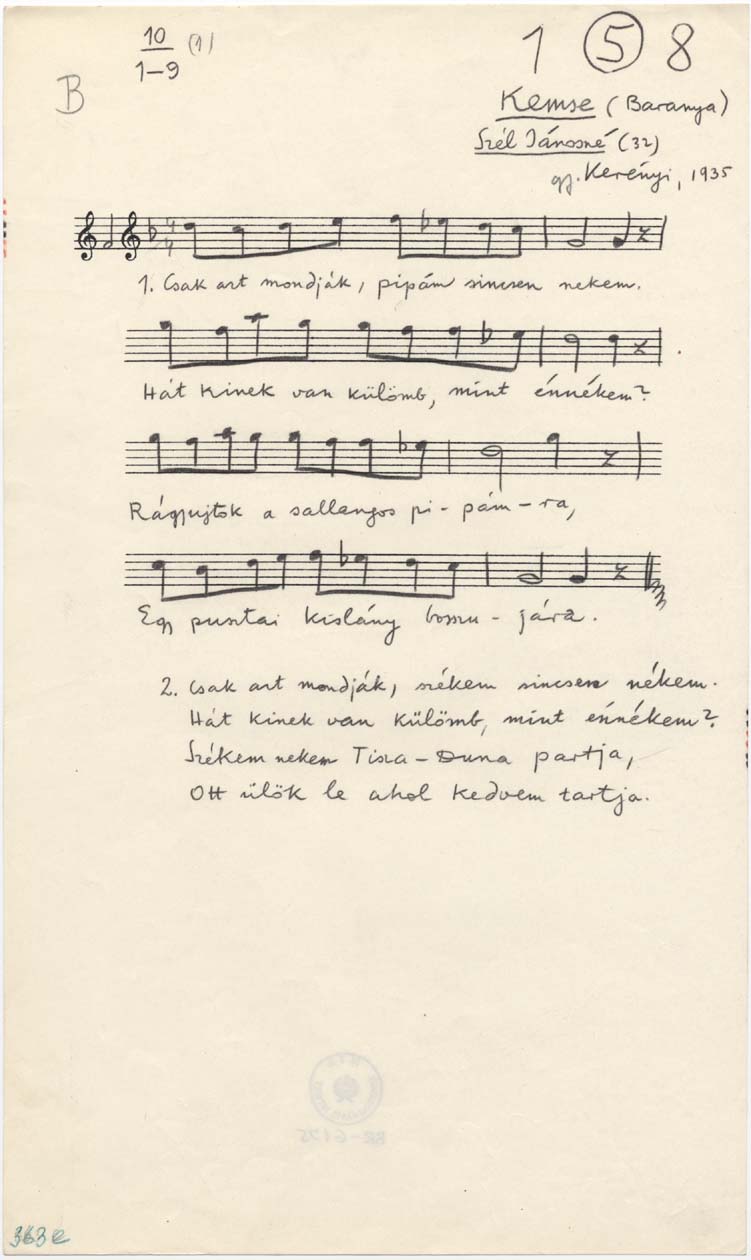 10 (1) 1 5 8
1–9
B
Kemse (Baranya)
Szél Jánosné (32)
gy. Kerényi, 1935
1. Csak azt mondják, pipám sincsen nekem.
Hát kinek van külömb, mint énnékem?
Rágyujtok a sallangos pi - pám - ra,
Egy pusztai kislány bosszu - jára.
2. Csak azt mondják, székem sincsen nékem.
Hát kinek van külömb, mint énnékem?
Székem nekem Tisza - Duna partja,
Ott ülök le ahol kedvem tartja.
363e